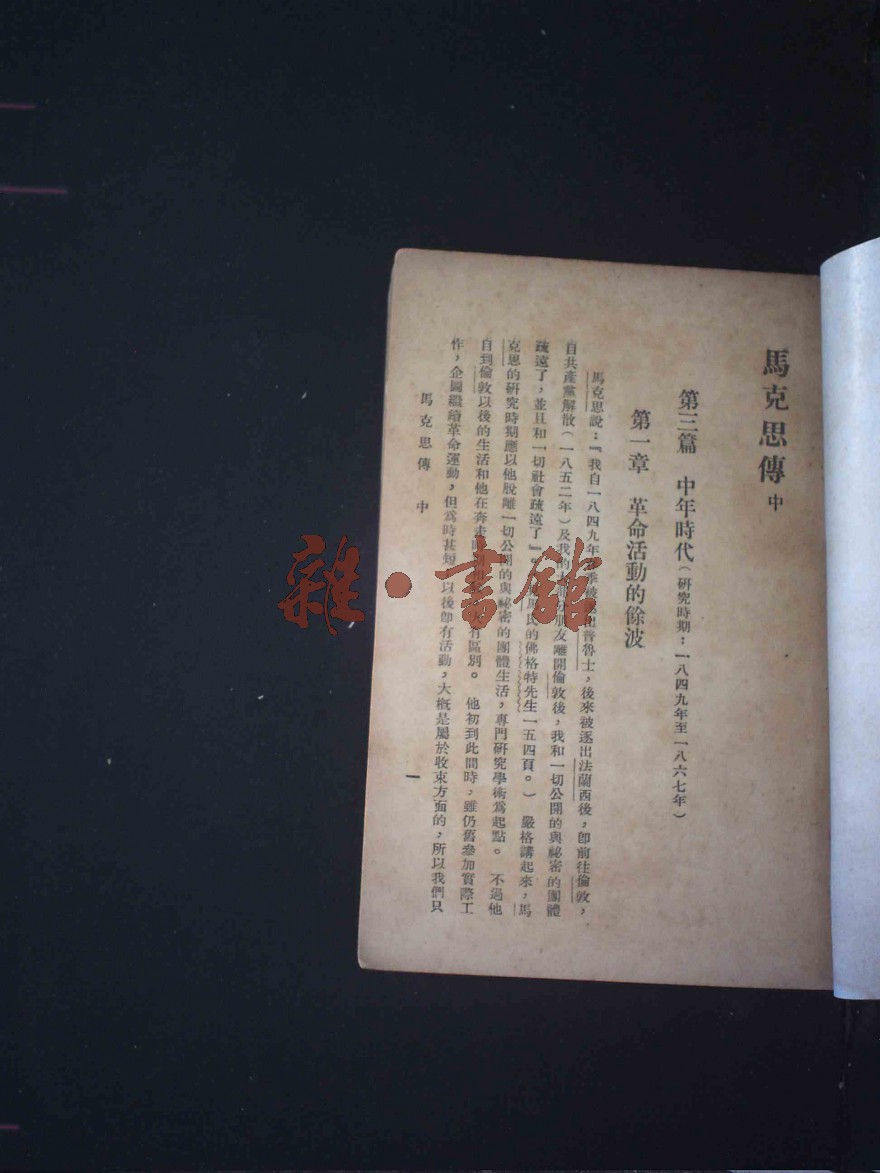 馬克思傳 中
第三篇 中年時代(研究時期:一八四九年至一八六七年)
第一章 革命活動的餘波
馬克思說:『我自一八四九年 普魯士,後來被逐出法蘭西後,卽前往倫敦,
自共產黨解散(一八五二年)及我的 朋友離開倫敦後,我和一切公開的與祕密的團體
疏遠了,並且和一切社會疏遠了』 氏的佛格特先生一五四頁。) 嚴格講起來,馬
克思的研究時期應以他脫離一切公開的與祕密的團體生活,專門研究學術爲起點。 不過他
自到倫敦以後的生活和他在奔走時期 有區別。 他初到此間時,雖仍舊參加實際工
作,企圖繼續革命運動,但爲時甚短,以後卽有活動,大概是屬於收束方面的,所以我們只
馬克思傳 中
一
雜·書館